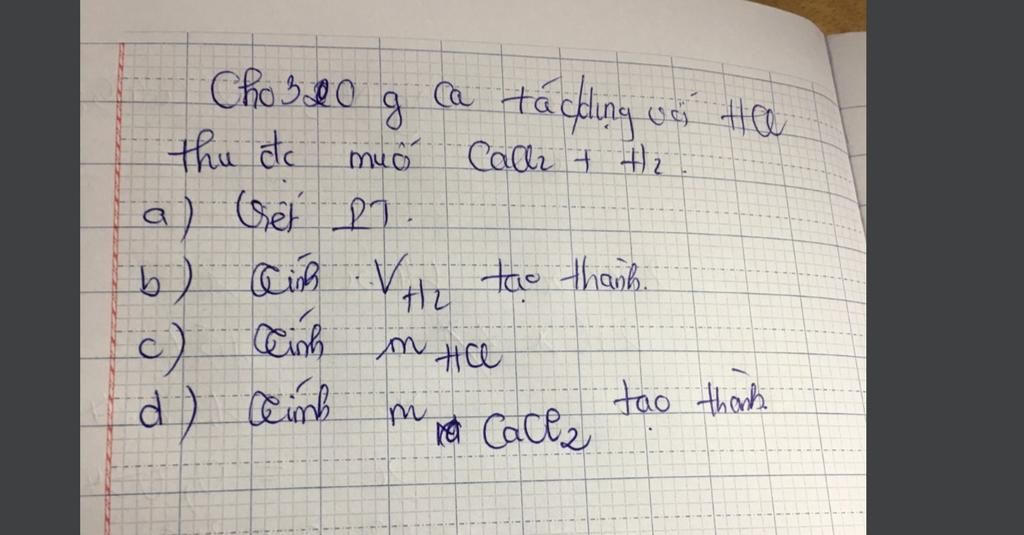 Cho 320 g Ca tác dụng với HCl
thu đc muố CaCl2 + H2.
a) Viết PT.
b) Tính VH2 tạo thành.
c) Tính m HCl
d) Tính m CaCl2 tạo thành